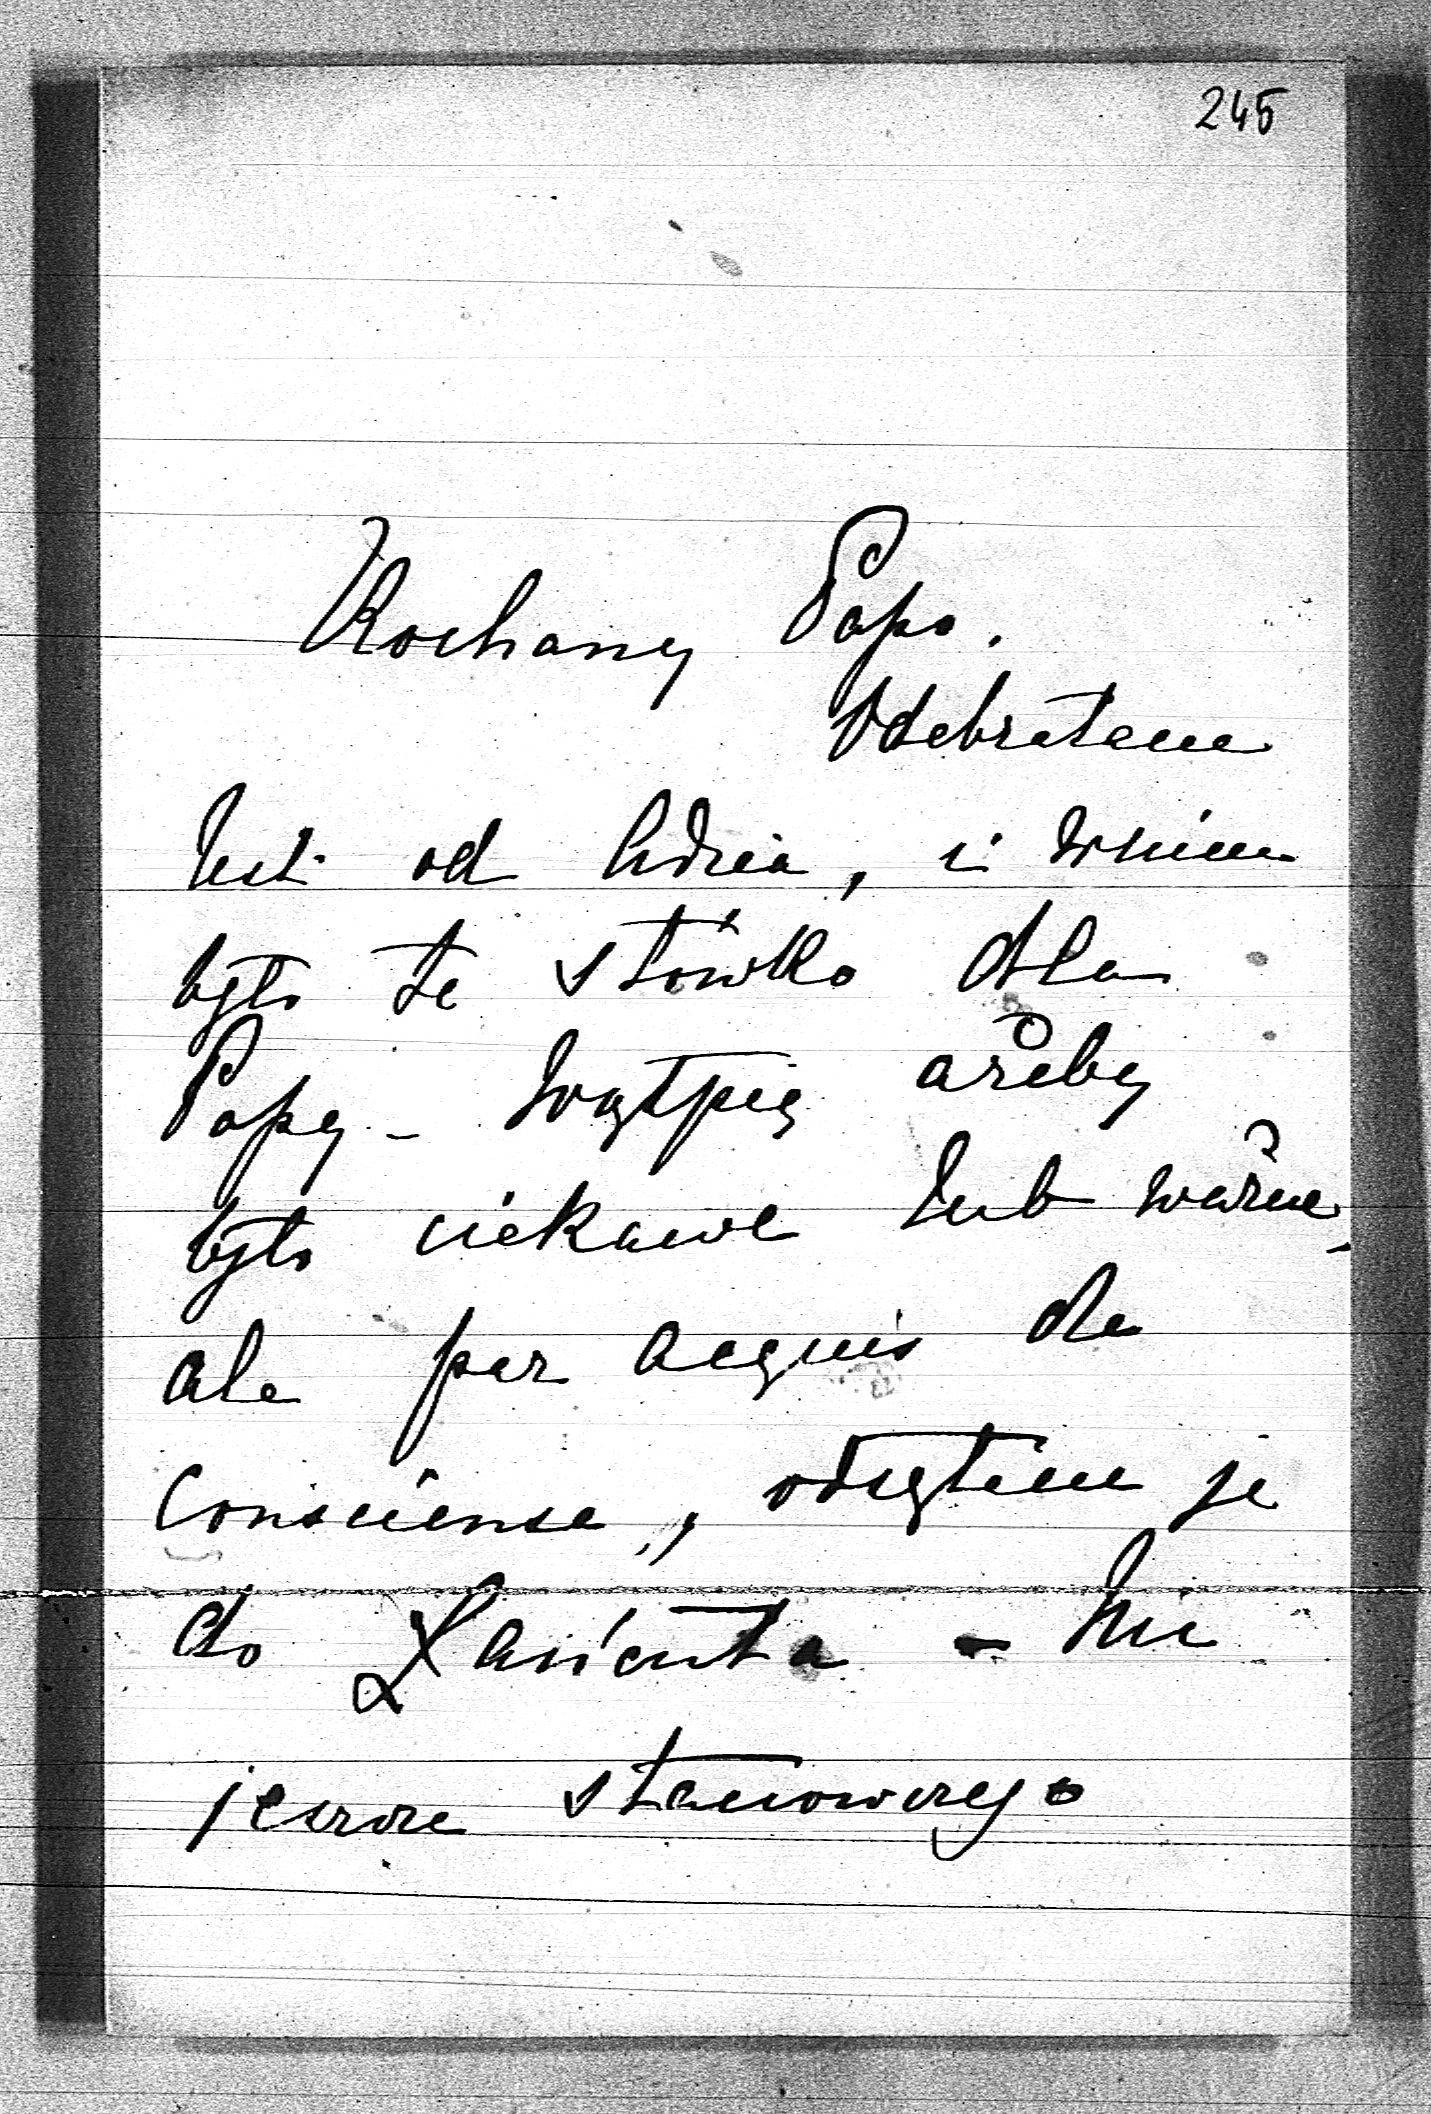 245
Kochany Papo.
Odebrałem
list od Adzia, i w nim
było te słówko dla
Papy – Wątpię ażeby
było ciekawe lub ważne,
ale per acquis de
consciense, odsyłam je
do Łańcuta – Nic
jeszcze stanowczego